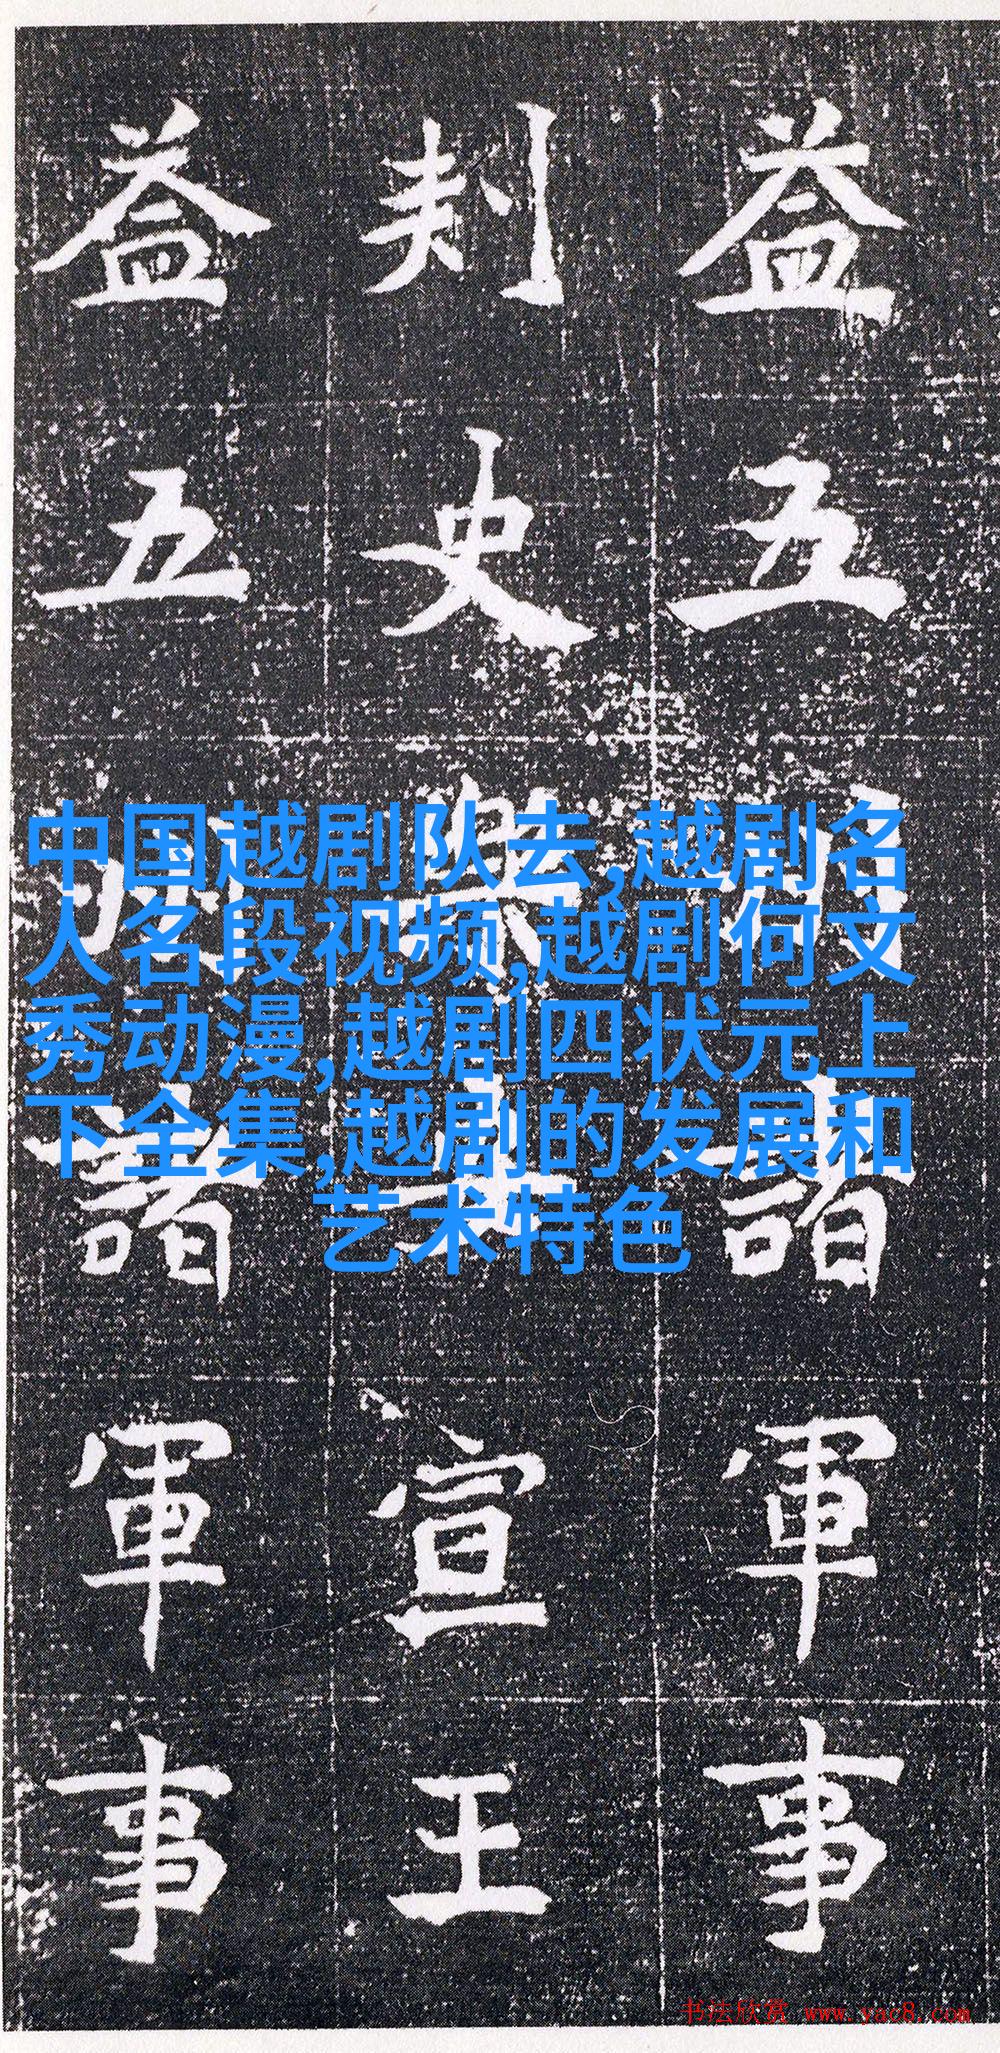 益五州諸軍事
刾史樂安宣王
益五州諸軍事
中国越剧队去,越剧名
人名段视频,越剧何文
秀动漫,越剧四状元上
下全集,越剧的发展和
艺术特色
书法欣赏 www.yac8.com